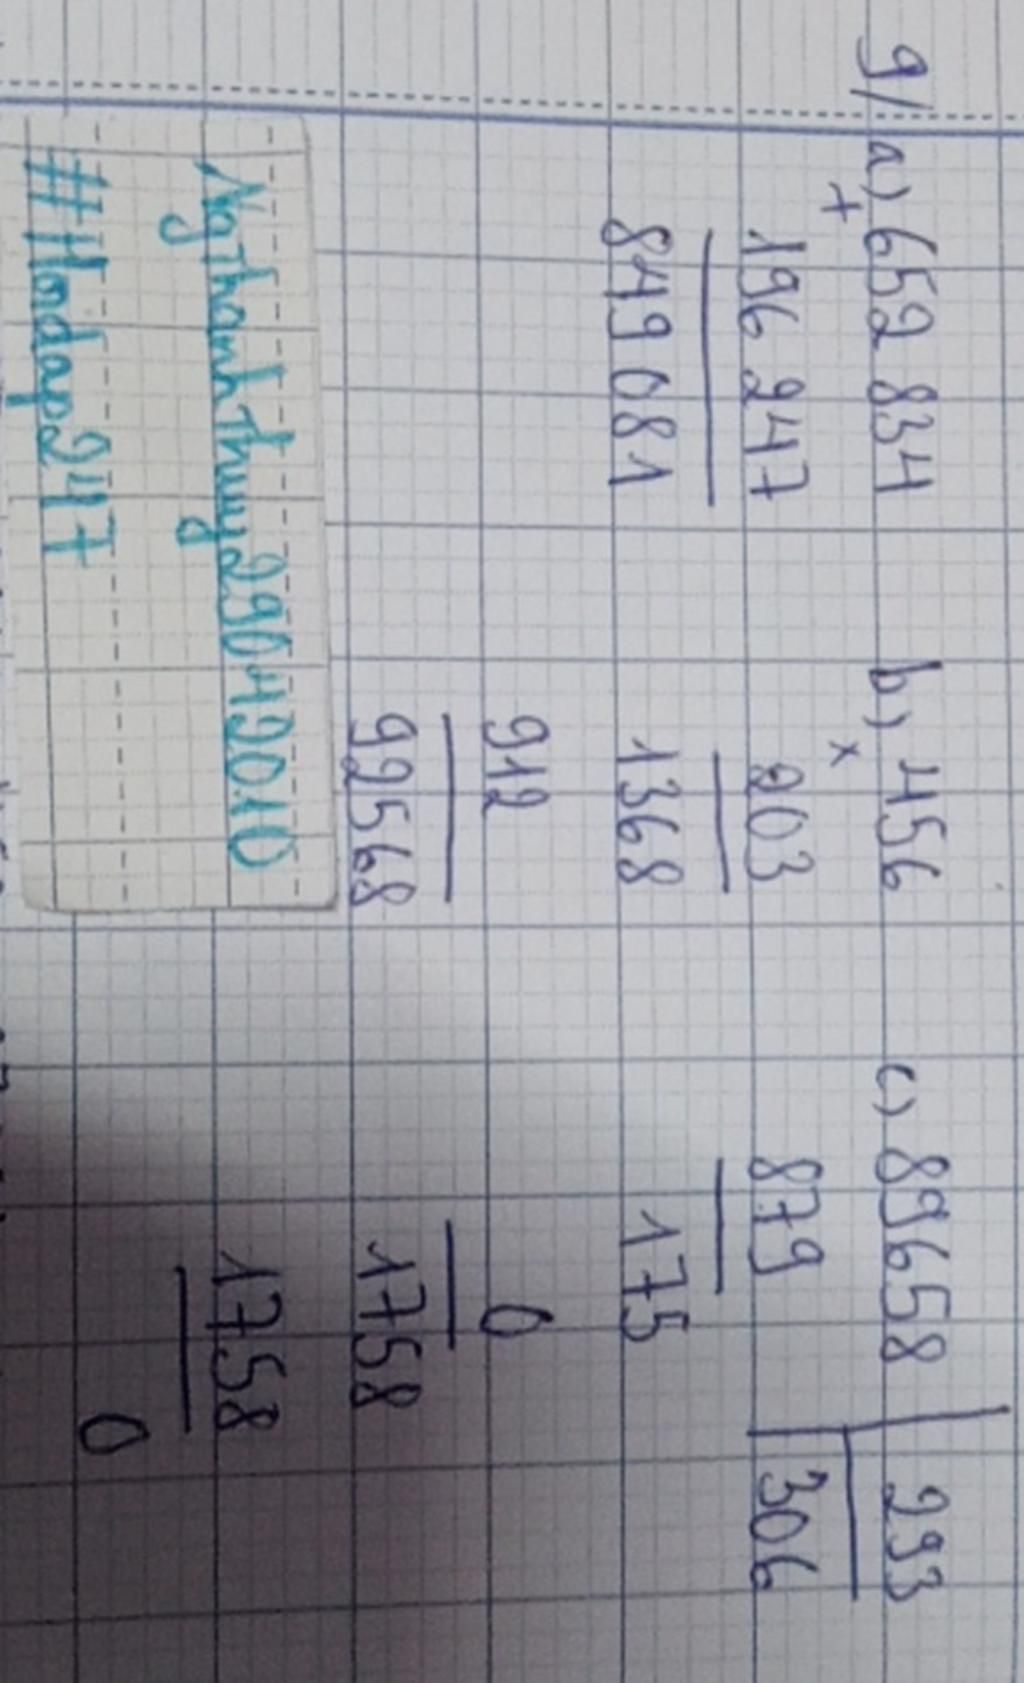 9/ a) 652 834
+
196 247
849 081
b) 456
x
203
1368
912
92568
c) 89658 | 293
879 306
175
0
1758
1758
0
NgThanhThuy29042010
#Hoidap247